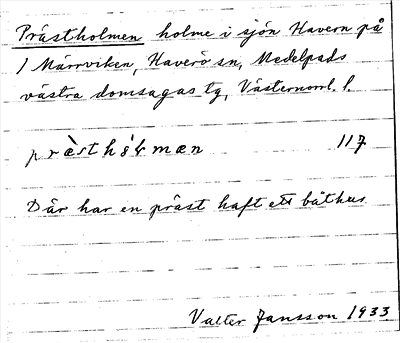 Prästholmen holme i sjön Havern på
1 Märrviken, Haverö sn, Medelpads
västra domsagas tg, Västernorrl. l.
præsthɷ́ɫmæn 117
Där har en präst haft ett båthus.
Valter Jansson 1933